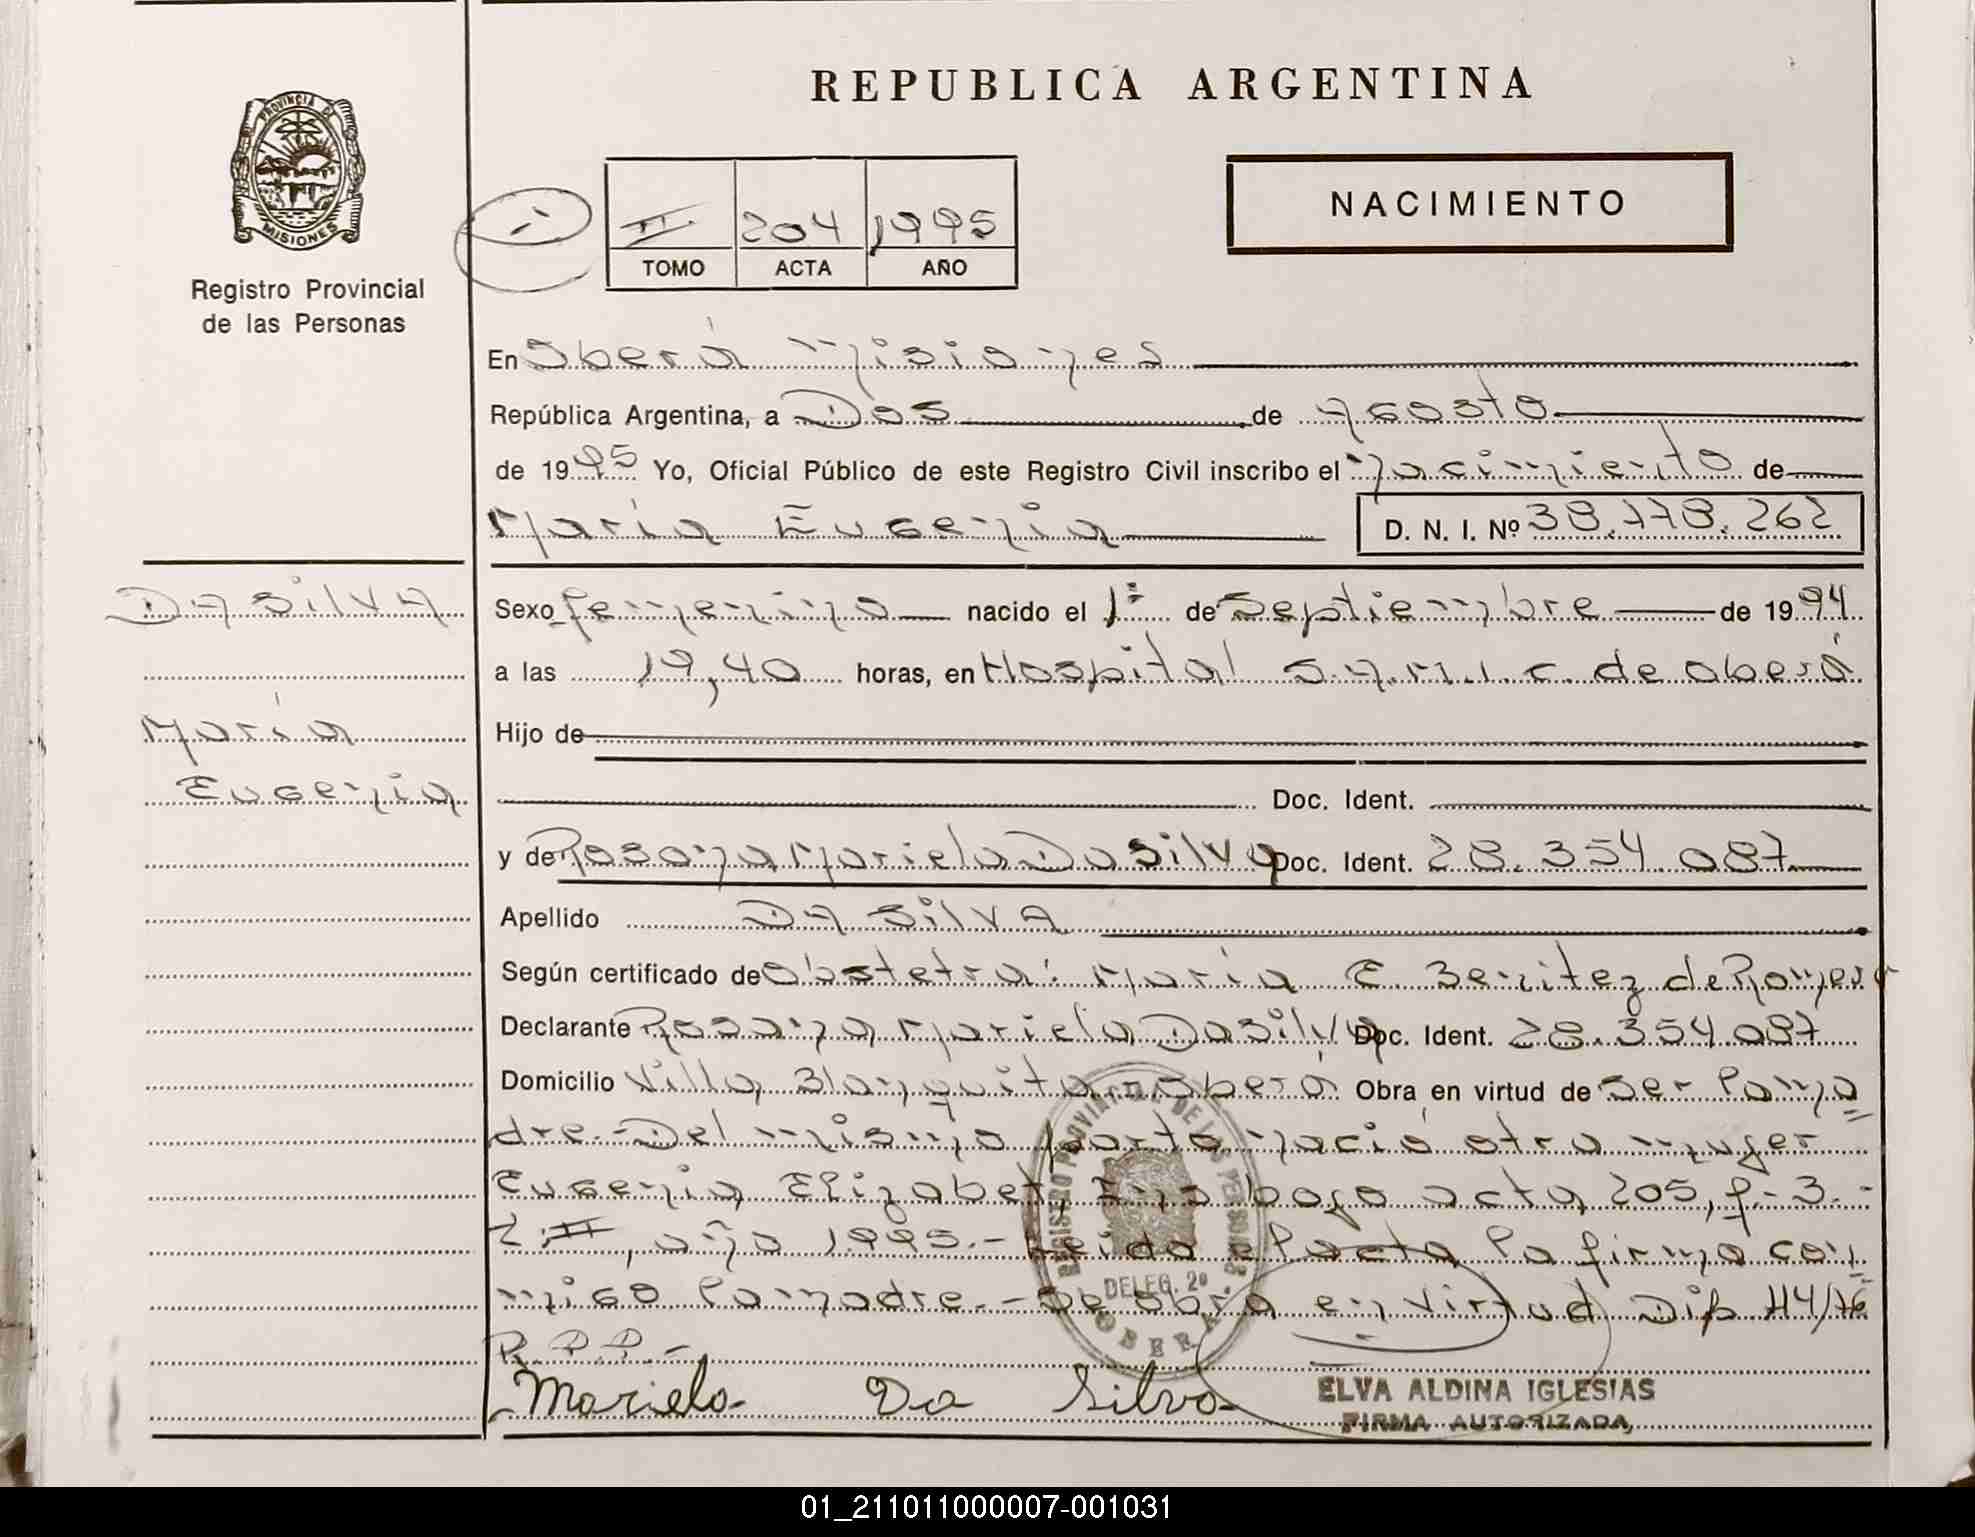 REPUBLICA ARGENTINA
PROVINCIA DE
MISIONES
Registro Provincial
de las Personas
II 204 1995
TOMO ACTA AÑO
NACIMIENTO
En Oberá Misiones
República Argentina, a Dos de Agosto
de 1995 Yo, Oficial Público de este Registro Civil inscribo el nacimiento de
María Eugenia D. N. I. Nº 38.778.262
DA SILVA
María
Eugenia
Sexo femenino nacido el 1º de Septiembre de 1994
a las 19,40 horas, en Hospital S.A.M.I.C. de Oberá
Hijo de
Doc. Ident.
y de Rosana Mariela Da Silva Doc. Ident. 28.354.087
Apellido DA SILVA
Según certificado de Obstetra: María E. Benitez de Romero
Declarante Rosana Mariela Da Silva Doc. Ident. 28.354.087
Domicilio Villa Blanquita - Oberá Obra en virtud de ser la ma
dre.- Del mismo parto nació otra mujer
Eugenia Elizabet, bajo acta 205, f- 3.-
T. II, año 1995.- Leida el acta la firma con
migo la madre.- Se obra en virtud Dip. 114/76
R.P.P.-
Mariela Da Silva
REGISTRO PROVINCIAL DE LAS PERSONAS
DELEG. 2º
OBERA
ELVA ALDINA IGLESIAS
FIRMA AUTORIZADA
01_211011000007-001031